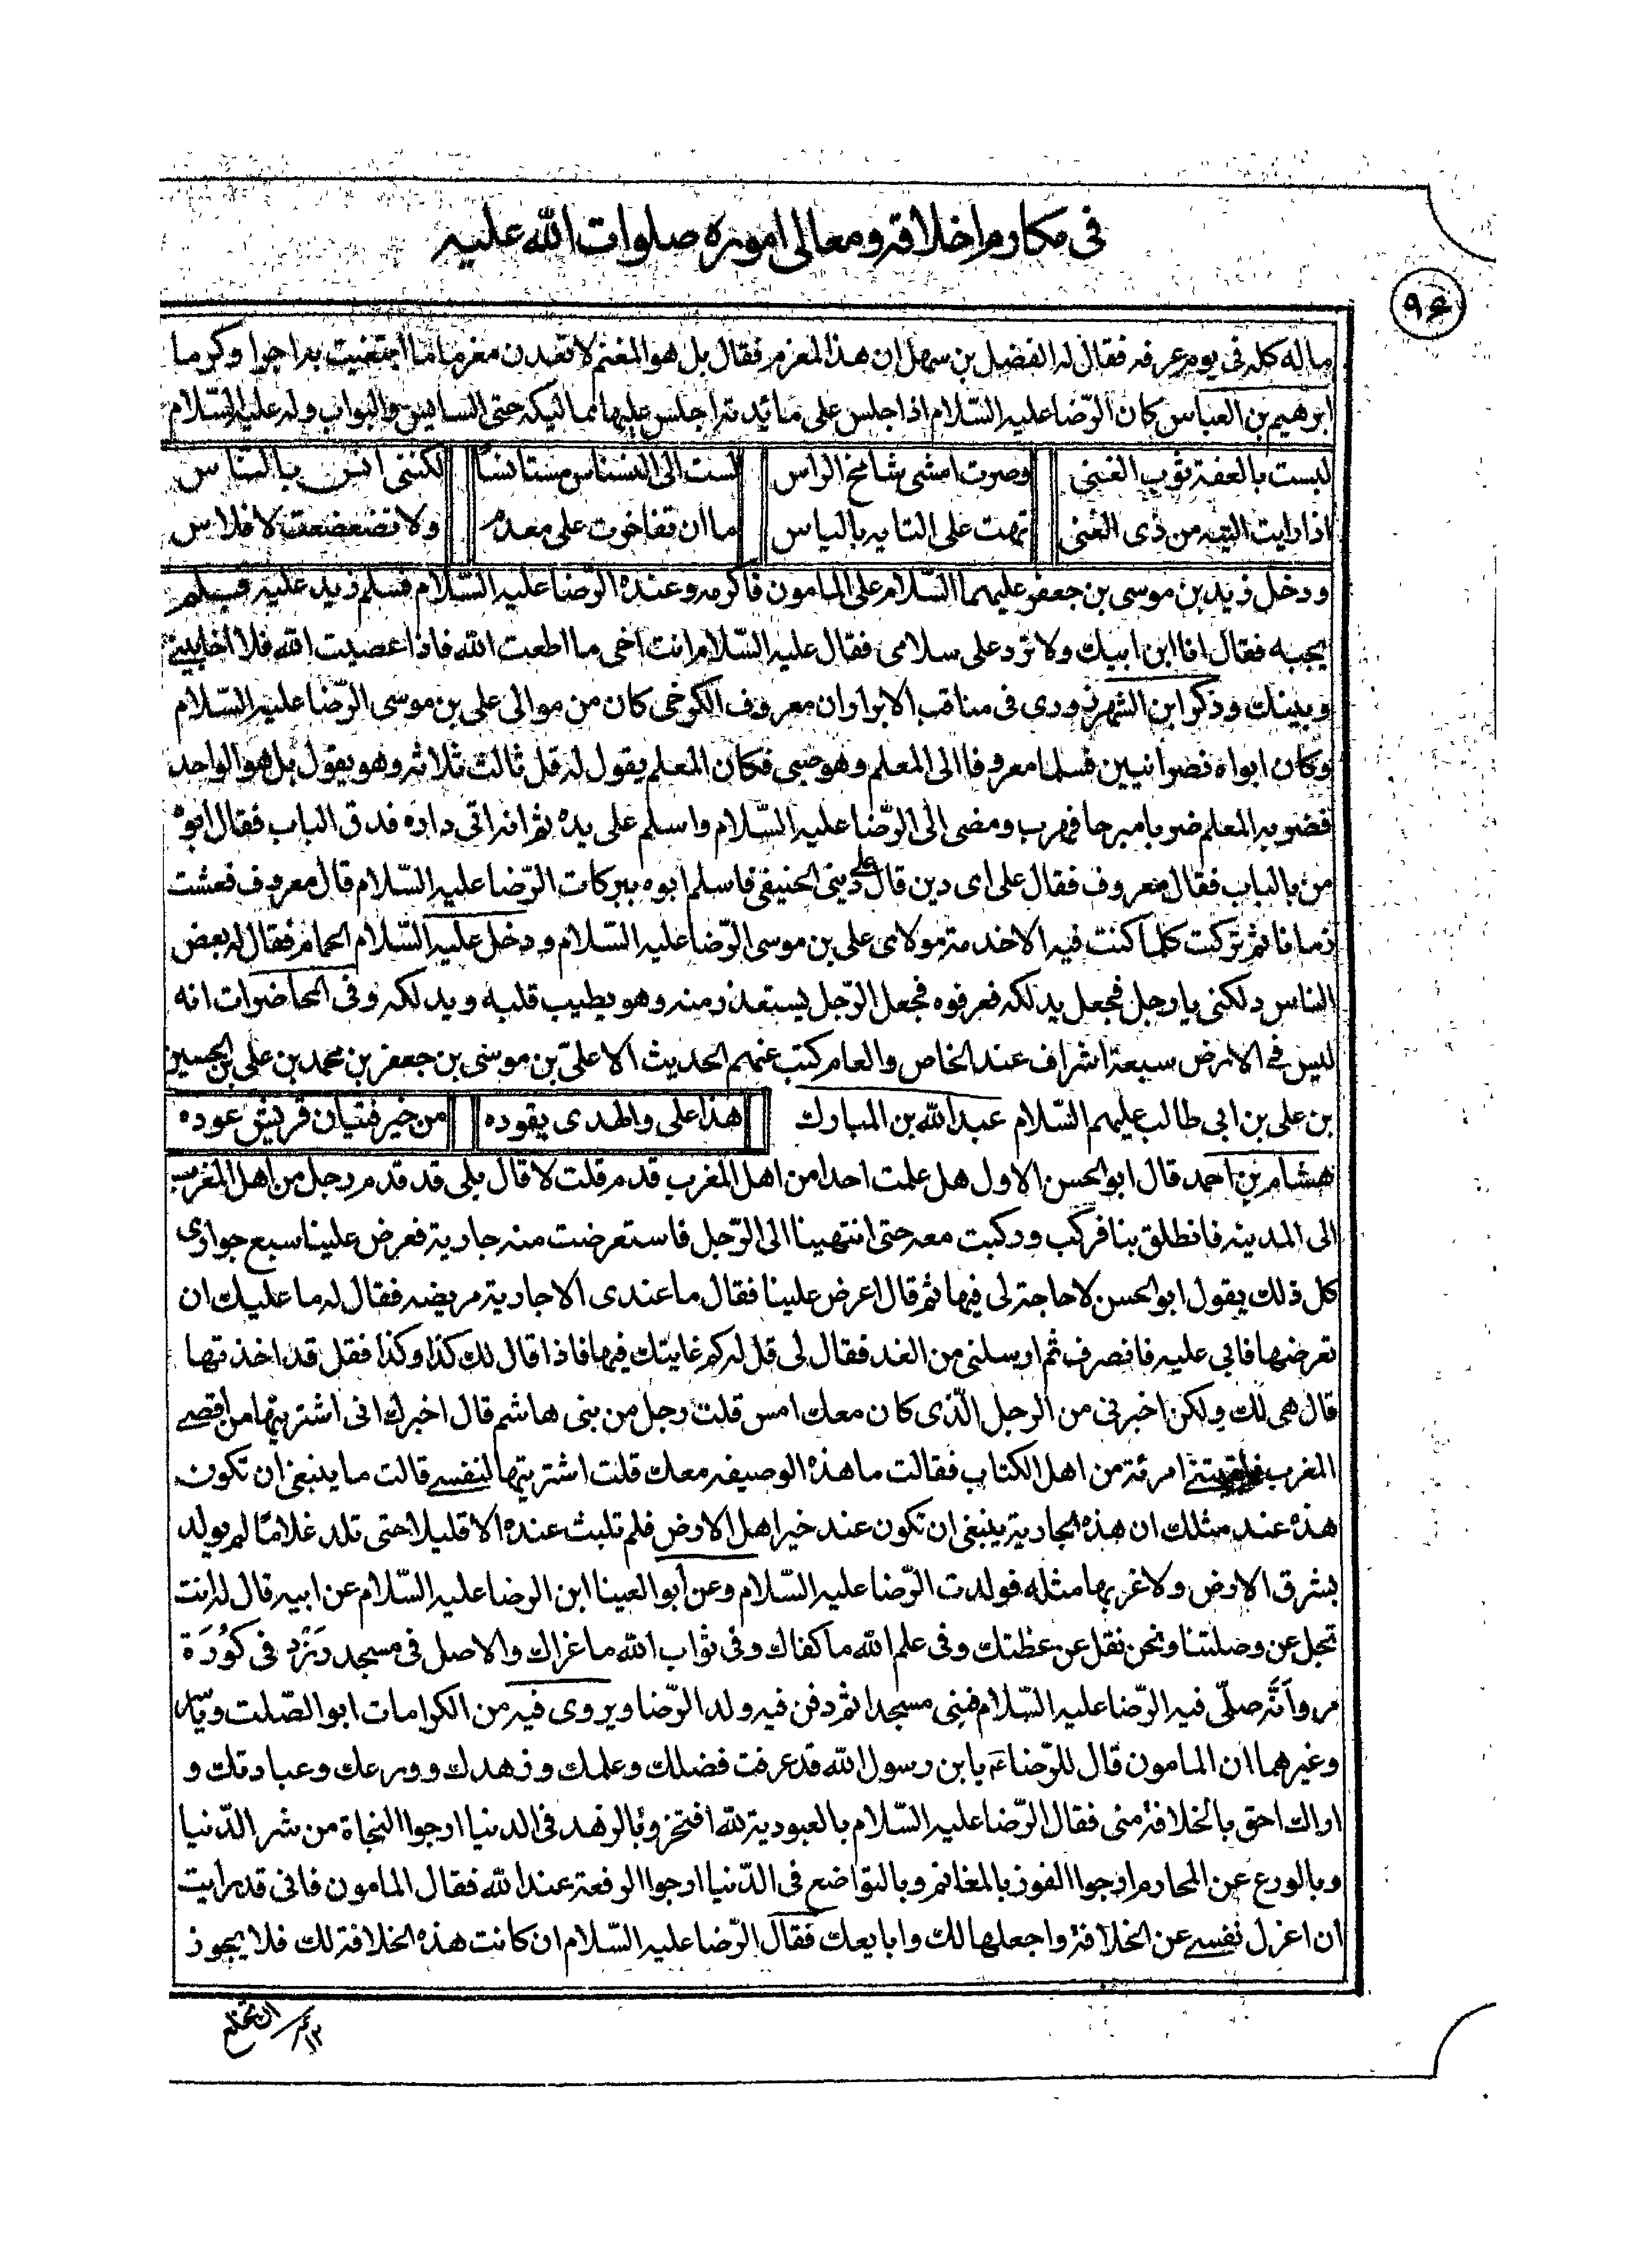 فى مكارم اخلاقه ومعالى اموره صلوات الله عليه
٩۶
ماله كله فى يوم عرفه فقال له الفضيل بن سهل ان هذا المغرم فقال بل هو المغنم لا تعدن مغرما ما ابتغيت به اجرا وكرما
ابرهيم بن العباس كان الرّضا عليه السّلام اذا جلس على مائدته اجلس عليها مماليكه حتى السايس والبواب وله عليه السّلام
لبست بالعفة ثوب الغنى وصرت امشى شامخ الراس لست الى النسناس مستانسًا لكننى انس بالناس
اذا رايت التيه من ذى الغنى تهت على التايه بالياس ما ان تفاخرت على معدم ولا تضعضعت لافلاس
ودخل زيد بن موسى بن جعفر عليهما السّلام على المامون فاكرمه وعنده الرّضا عليه السّلام فسلم زيد عليه فلم
يجبه فقال انا ابن ابيك ولا ترد على سلامى فقال عليه السّلام انت اخى ما اطعت الله فاذا عصيت الله فلا اخا بينى
وبينك وذكر ابن الشهرزورى فى مناقب الابرار ان معروف الكرخى كان من موالى على بن موسى الرّضا عليه السّلام
وكان ابواه نصرانيين فسلما معروفا الى المعلم وهو صبى فكان المعلم يقول له قل ثالث ثلاثه وهو يقول بل هو الواحد
فضربه المعلم ضربا مبرحا فهرب ومضى الى الرّضا عليه السّلام واسلم على يده ثم انه اتى داره فدق الباب فقال ابوه
من بالباب فقال معروف فقال على اى دين قال على دينى الحنيفى فاسلم ابوه ببركات الرّضا عليه السّلام قال معروف فعشت
زمانا ثم تركت كلما كنت فيه الا خدمة مولاى على بن موسى الرّضا عليه السّلام ودخل عليه السّلام الحمام فقال له بعض
الناس دلكنى يا رجل فجعل يدلكه فعرفوه فجعل الرّجل يستعذر منه وهو يطيب قلبه ويدلكه وفى المحاضرات انه
ليس فى الارض سبعة اشراف عند الخاص والعام كتب عنهم الحديث الا علىّ بن موسى بن جعفر بن محمد بن على بن الحسين
بن على بن ابى طالب عليهم السّلام عبد الله بن المبارك هذا على والهدى يقوده من خير فتيان قريش عوده
هشام بن احمد قال ابو الحسن الاول هل علمت احدا من اهل المغرب قدم قلت لا قال بلى قد قدم رجل من اهل المغرب
الى المدينه فانطلق بنا فركب وركبت معه حتى انتهينا الى الرّجل فاستعرضت منه جارية فعرض علينا سبع جوارى
كل ذلك يقول ابو الحسن لا حاجة لى فيها ثم قال اعرض علينا فقال ما عندى الا جارية مريضه فقال له ما عليك ان
تعرضها فابى عليه فانصرف ثم ارسلنى من الغد فقال لى قل له كم غايتك فيها فاذا قال لك كذا وكذا فقل قد اخذتها
قال هى لك ولكن اخبرنى من الرجل الّذى كان معك امس قلت رجل من بنى هاشم قال اخبرك انى اشتريتها من اقصى
المغرب فلقيتنى امرئة من اهل الكتاب فقالت ما هذه الوصيفه معك قلت اشتريتها لنفسى قالت ما ينبغى ان تكون
هذه عند مثلك ان هذه الجارية ينبغى ان تكون عند خير اهل الارض فلم تلبث عنده الا قليلا حتى تلد غلامًا لم يولد
بشرق الارض ولا غربها مثله فولدت الرّضا عليه السّلام وعن أبو العينا ابن الرضا عليه السّلام عن ابيه قال له انت
تجل عن وصلتنا ونحن نقل عن عظتك وفى علم الله ما كفاك وفى ثواب الله ما عزاك والاصل فى مسجد دَزْد فى كُورَة
مرو أنّه صلّى فيه الرّضا عليه السّلام فبنى مسجدا ثم دفن فيه ولد الرّضا ويروى فيه من الكرامات ابو الصّلت وياسر
وغيرهما ان المامون قال للرّضا ع يا بن رسول الله قد عرفت فضلك وعلمك وزهدك وورعك وعبادتك و
اراك احق بالخلافة منى فقال الرّضا عليه السّلام بالعبودية لله افتخر وبالزهد فى الدنيا ارجوا النجاة من شر الدّنيا
وبالورع عن المحارم ارجوا الفوز بالمغانم وبالتواضع فى الدّنيا ارجوا الرفعة عند الله فقال المامون فانى قد رايت
ان اعزل نفسى عن الخلافة واجعلها لك وابايعك فقال الرّضا عليه السّلام ان كانت هذه الخلافة لك فلا يجوز
ان تخلع